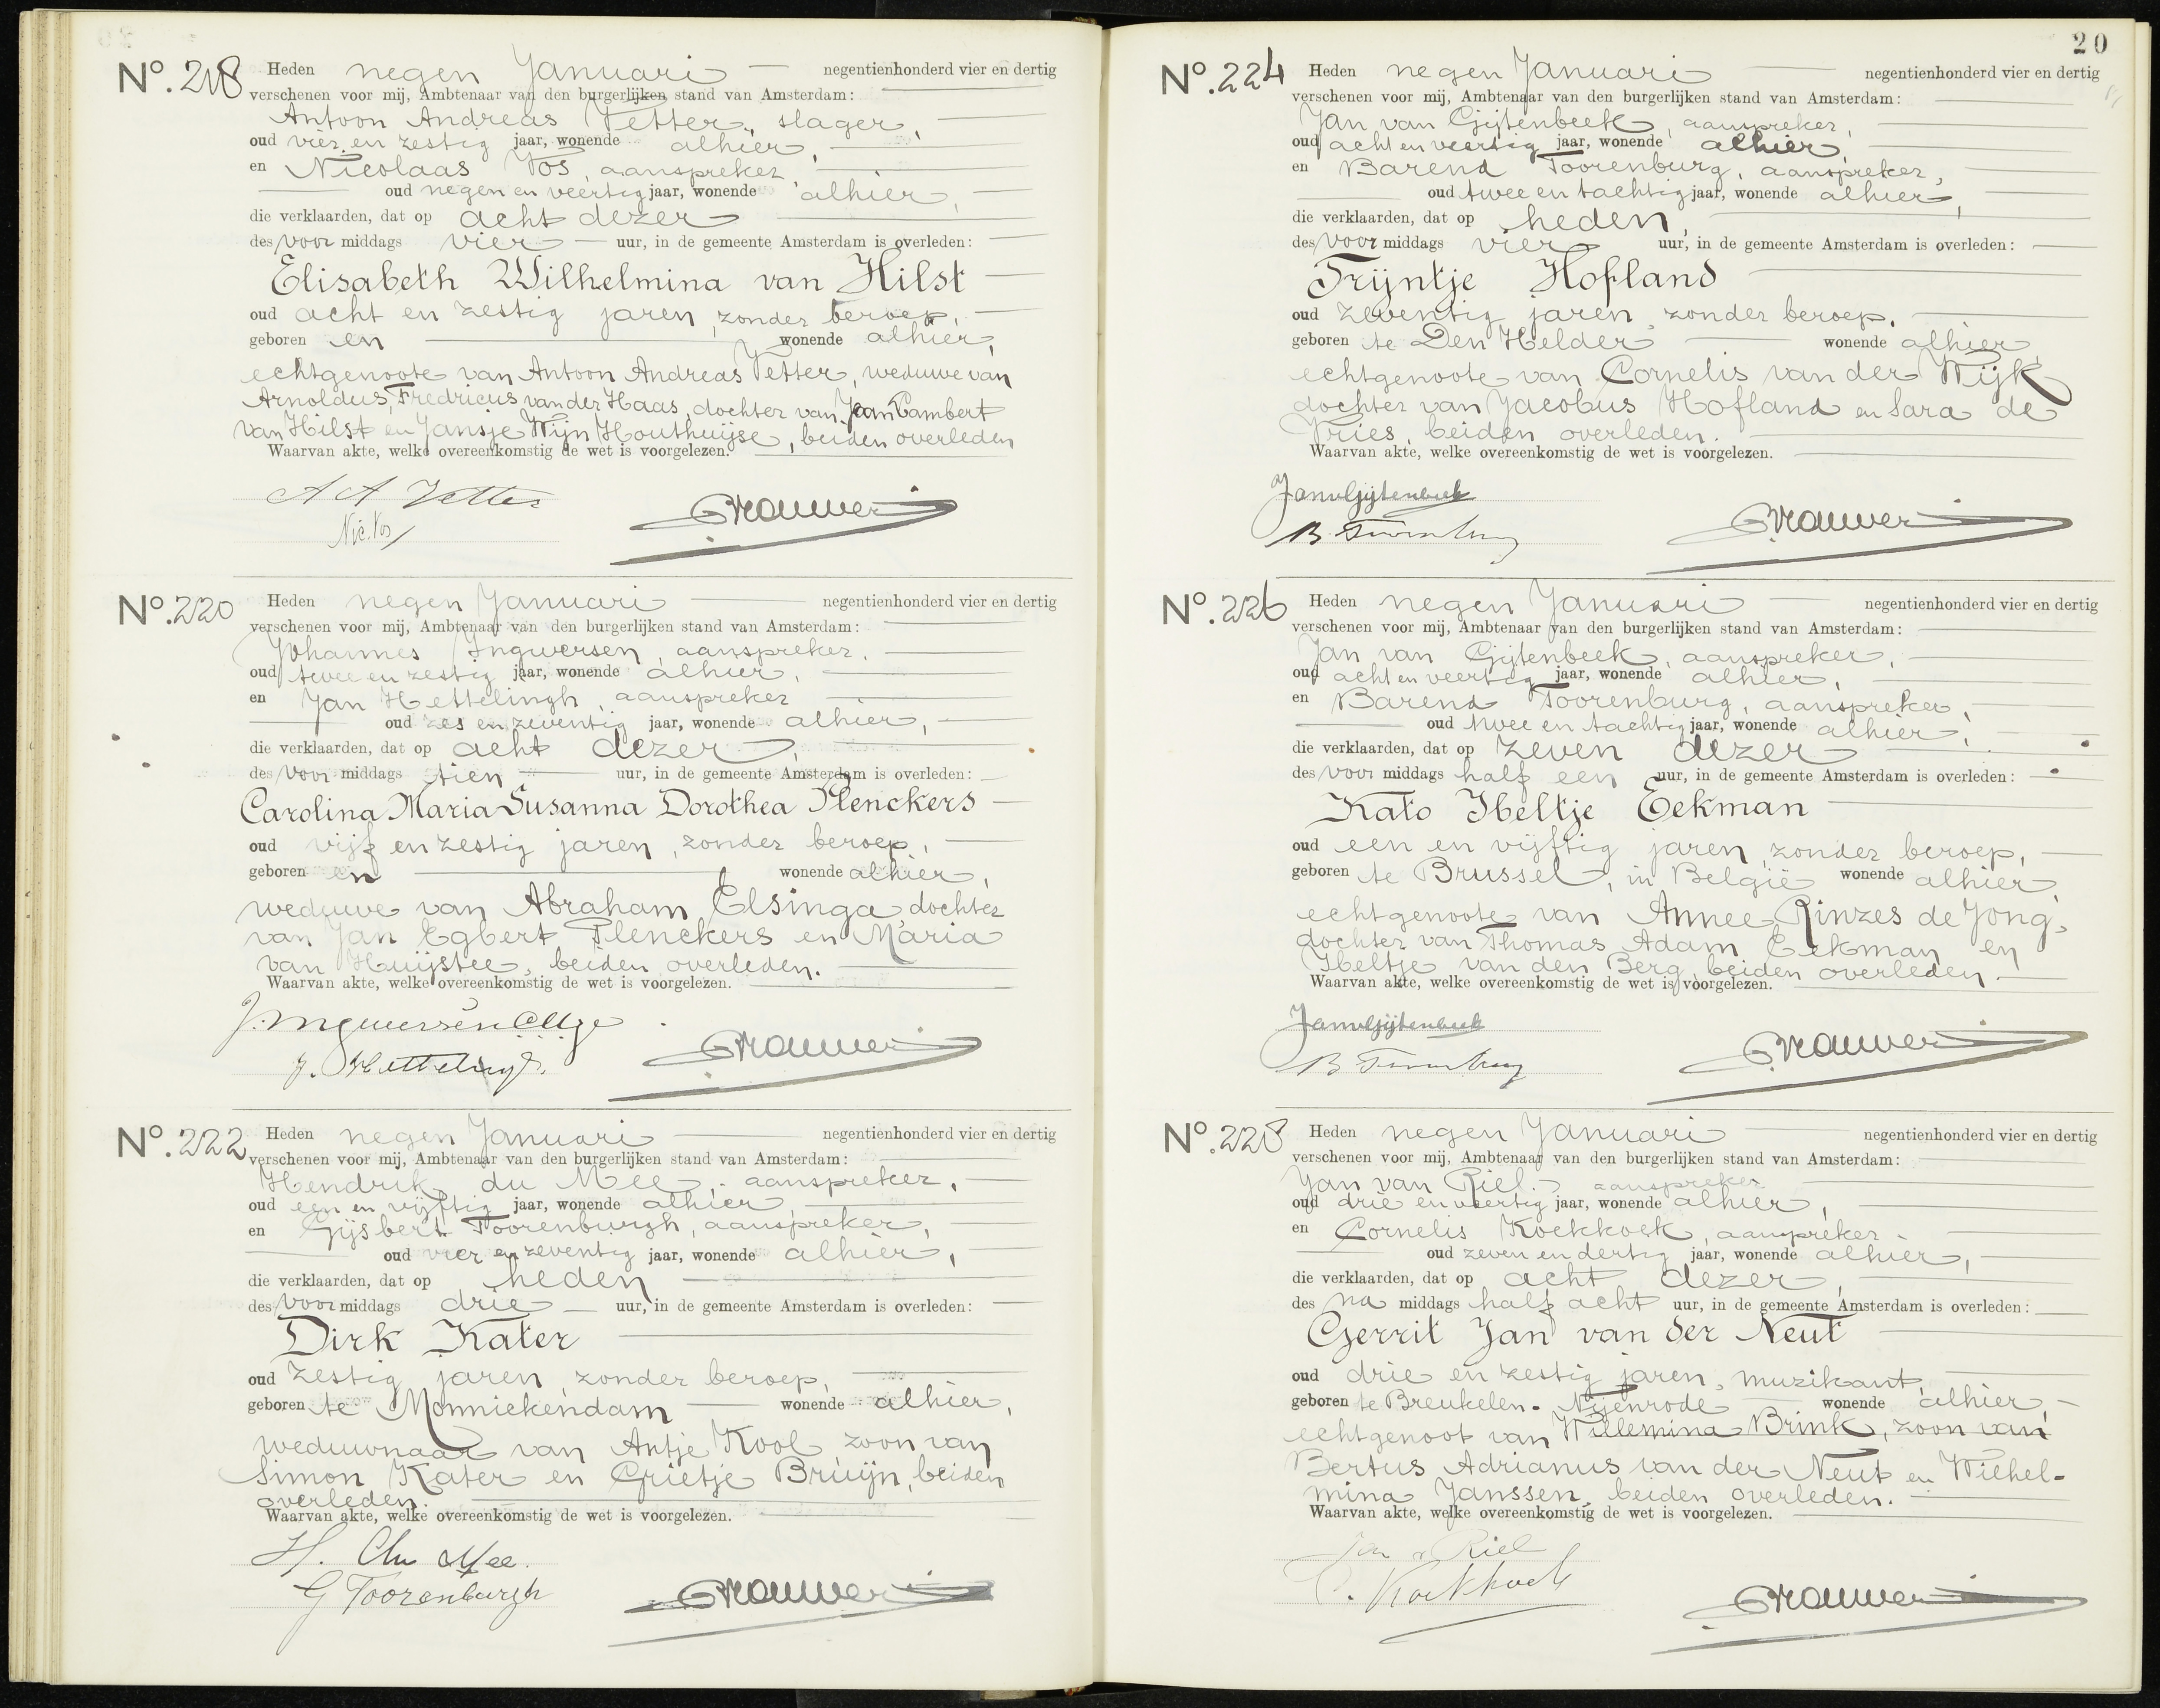 No. 218 Heden negen Januari negentienhonderd vier en dertig
verschenen voor mij, Ambtenaar van den burgerlijken stand van Amsterdam:
Antoon Andreas Vetter, slager,
oud vier en zestig jaar, wonende alhier,
en Nicolaas Vos, aanspreker,
oud negen en veertig jaar, wonende alhier,
die verklaarden, dat op acht dezer
des voor middags vier uur, in de gemeente Amsterdam is overleden:
Elisabeth Wilhelmina van Hilst
oud acht en zestig jaren, zonder beroep,
geboren en wonende alhier,
echtgenoote van Antoon Andreas Vetter, weduwe van
Arnoldus Fredricus van der Haas, dochter van Jean Lambert
van Hilst en Jansje Wijn Houthuijse, beiden overleden
Waarvan akte, welke overeenkomstig de wet is voorgelezen.
A A Vetter
Nic. Vos
Brouwer
No. 220 Heden negen Januari negentienhonderd vier en dertig
verschenen voor mij, Ambtenaar van den burgerlijken stand van Amsterdam:
Johannes Ingwersen, aanspreker,
oud twee en zestig jaar, wonende alhier,
en Jan Hettelingh, aanspreker
oud zes en zeventig jaar, wonende alhier,
die verklaarden, dat op acht dezer,
des voor middags tien uur, in de gemeente Amsterdam is overleden:
Carolina Maria Susanna Dorothea Plenckers
oud vijf en zestig jaren, zonder beroep,
geboren en wonende alhier,
weduwe van Abraham Elsinga, dochter
van Jan Egbert Plenckers en Maria
van Huijstee, beiden overleden.
Waarvan akte, welke overeenkomstig de wet is voorgelezen.
J. Ingwersen
J. Hettelingh
Brouwer
No. 222 Heden negen Januari negentienhonderd vier en dertig
verschenen voor mij, Ambtenaar van den burgerlijken stand van Amsterdam:
Hendrik du Mee, aanspreker,
oud een en vijftig jaar, wonende alhier,
en Gijsbert Toorenburgh, aanspreker,
oud vier en zeventig jaar, wonende alhier,
die verklaarden, dat op heden
des voor middags drie uur, in de gemeente Amsterdam is overleden:
Dirk Kater
oud zestig jaren, zonder beroep,
geboren te Monnickendam wonende alhier,
weduwnaar van Antje Kool, zoon van
Simon Kater en Grietje Bruijn, beiden
overleden.
Waarvan akte, welke overeenkomstig de wet is voorgelezen.
H. du Mee.
G Toorenburgh
Brouwer
20
No. 224 Heden negen Januari negentienhonderd vier en dertig
verschenen voor mij, Ambtenaar van den burgerlijken stand van Amsterdam:
Jan van Gijtenbeek, aanspreker,
oud acht en veertig jaar, wonende alhier,
en Barend Toorenburg, aanspreker,
oud twee en tachtig jaar, wonende alhier,
die verklaarden, dat op heden,
des voor middags vier uur, in de gemeente Amsterdam is overleden:
Trijntje Hofland
oud zeventig jaren, zonder beroep,
geboren te Den Helder wonende alhier,
echtgenoote van Cornelis van der Wijk
dochter van Jacobus Hofland en Sara de
Vries, beiden overleden.
Waarvan akte, welke overeenkomstig de wet is voorgelezen.
JanvGijtenbeek
B Toorenburg
Brouwer
No. 226 Heden negen Januari negentienhonderd vier en dertig
verschenen voor mij, Ambtenaar van den burgerlijken stand van Amsterdam:
Jan van Gijtenbeek, aanspreker,
oud acht en veertig jaar, wonende alhier,
en Barend Toorenburg, aanspreker,
oud twee en tachtig jaar, wonende alhier,
die verklaarden, dat op zeven dezer
des voor middags half een uur, in de gemeente Amsterdam is overleden:
Kato IJbeltje Eekman
oud een en vijftig jaren, zonder beroep,
geboren te Brussel, in België wonende alhier,
echtgenoote van Annee Rinzes de Jong,
dochter van Thomas Adam Eekman en
IJbeltje van den Berg, beiden overleden
Waarvan akte, welke overeenkomstig de wet is voorgelezen.
JanvGijtenbeek
B Toorenburg
Brouwer
No. 228 Heden negen Januari negentienhonderd vier en dertig
verschenen voor mij, Ambtenaar van den burgerlijken stand van Amsterdam:
Jan van Riel, aanspreker
oud drie en veertig jaar, wonende alhier,
en Cornelis Koekkoek, aanspreker
oud zeven en dertig jaar, wonende alhier,
die verklaarden, dat op acht dezer,
des na middags half acht uur, in de gemeente Amsterdam is overleden:
Gerrit Jan van der Neut
oud drie en zestig jaren, muzikant,
geboren te Breukelen-Nijenrode wonende alhier,
echtgenoot van Willemina Brink, zoon van
Bertus Adrianus van der Neut en Wilhel-
mina Janssen, beiden overleden.
Waarvan akte, welke overeenkomstig de wet is voorgelezen.
Jan v Riel
C. Koekkoek
Brouwer